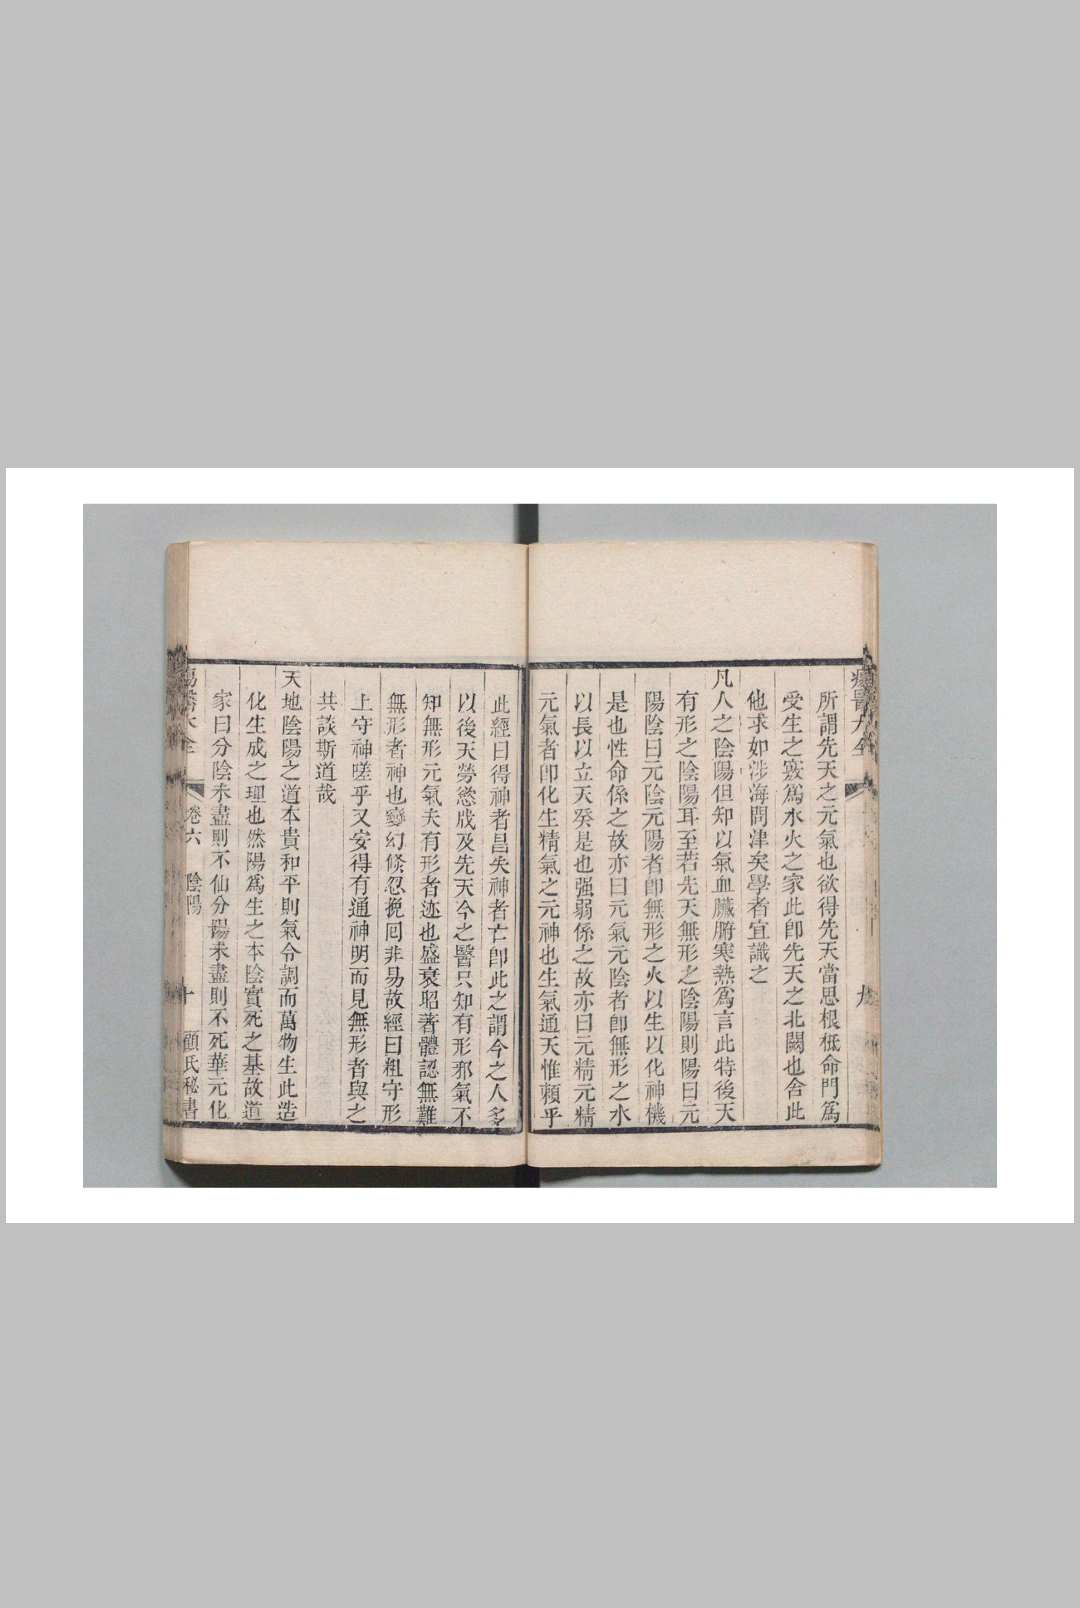 瘍醫大全
九
所謂先天之元氣也欲得先天當思根柢命門爲
受生之竅爲水火之家此卽先天之北闕也舍此
他求如涉海問津矣學者宜識之
凡人之陰陽但知以氣血臟腑寒熱爲言此特後天
有形之陰陽耳至若先天無形之陰陽則陽曰元
陽陰曰元陰元陽者卽無形之火以生以化神機
是也性命係之故亦曰元氣元陰者卽無形之水
以長以立天癸是也强弱係之故亦曰元精元精
元氣者卽化生精氣之元神也生氣通天惟賴乎
此經曰得神者昌失神者亡卽此之謂今之人多
以後天勞慾戕及先天今之醫只知有形邪氣不
知無形元氣夫有形者迹也盛衰昭著體認無難
無形者神也變幻倐忽挽囘非易故經曰粗守形
上守神嗟乎又安得有通神明而見無形者與之
共談斯道哉
天地陰陽之道本貴和平則氣令調而萬物生此造
化生成之理也然陽爲生之本陰實死之基故道
家曰分陰未盡則不仙分陽未盡則不死華元化
瘍醫大全 卷六 陰陽 十 顧氏秘書